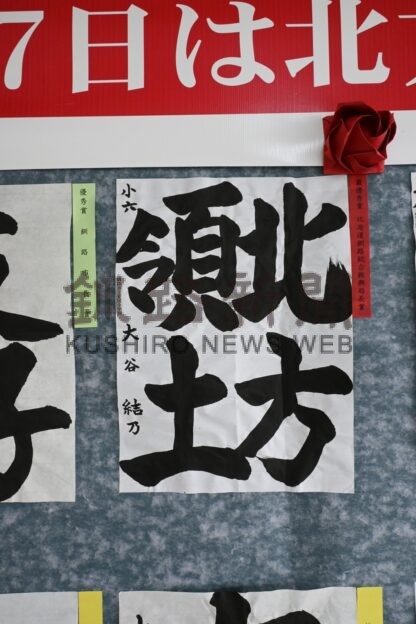 7日は北方
北方
領土
小六 大谷 結乃
最優秀賞 北海道釧路総合振興局長賞
優秀賞 釧路
釧路新聞
KUSHIRO.NEWS.WEB